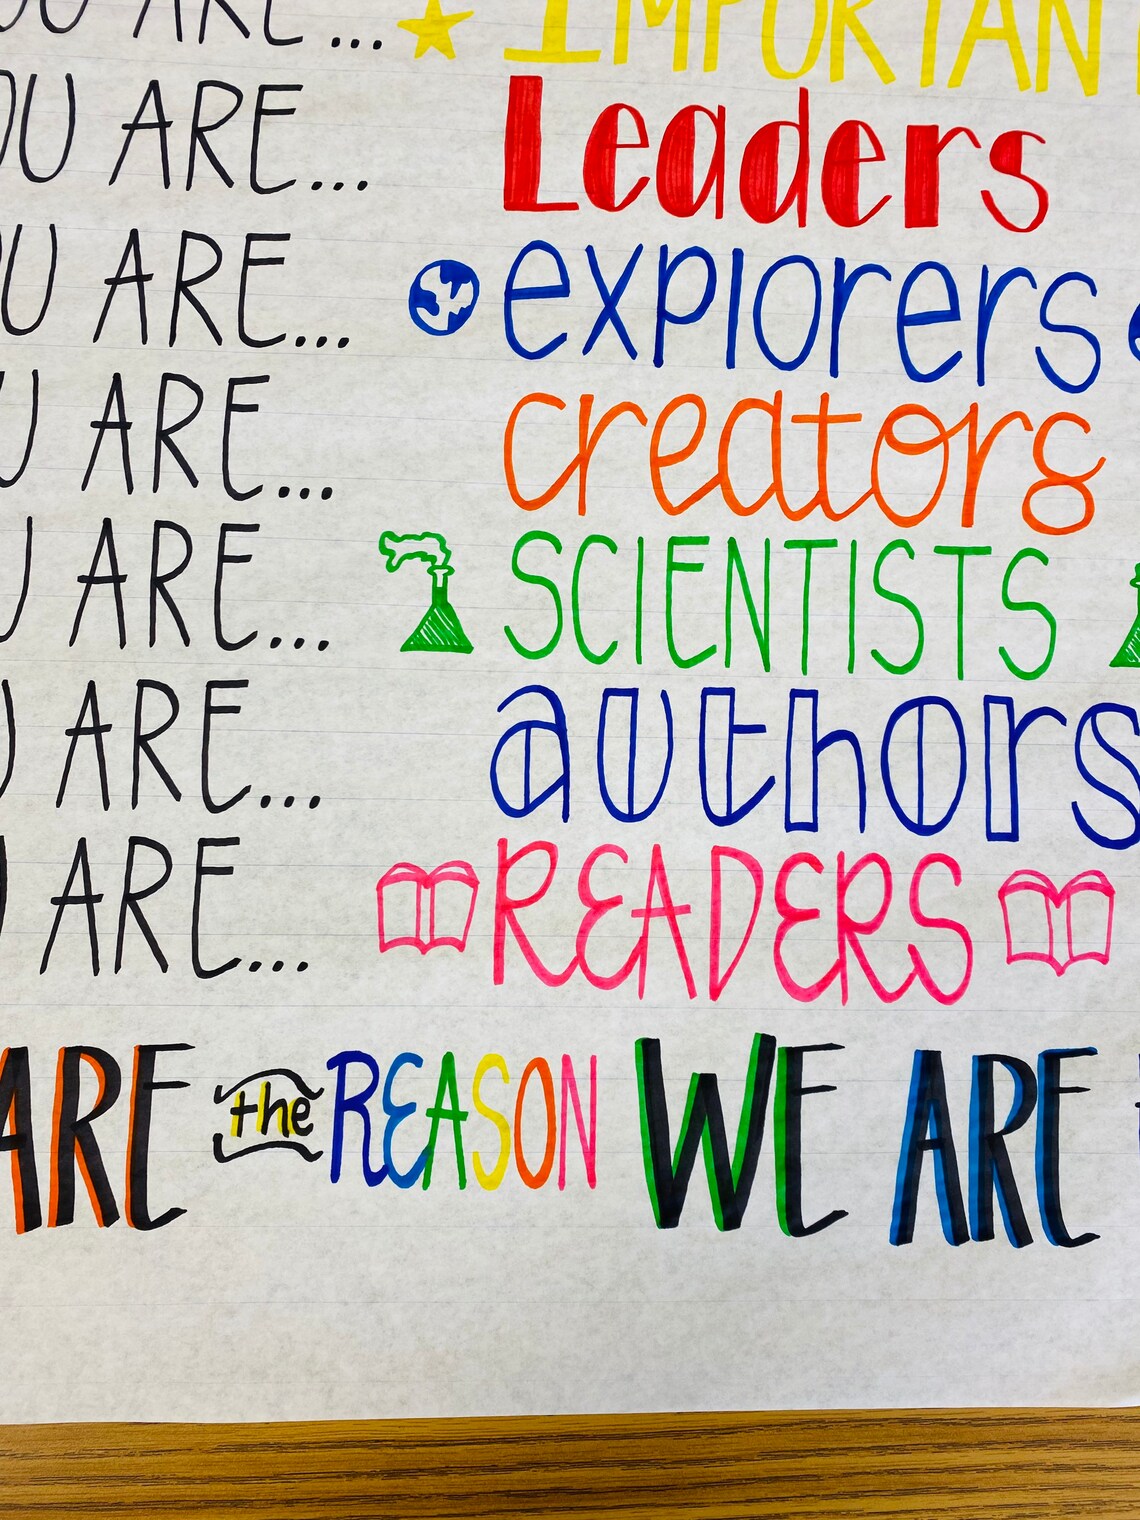 OU ARE... IMPORTANT
OU ARE... Leaders
OU ARE... explorers
U ARE... creators
U ARE... SCIENTISTS
U ARE... authors
ARE... READERS
ARE the REASON WE ARE